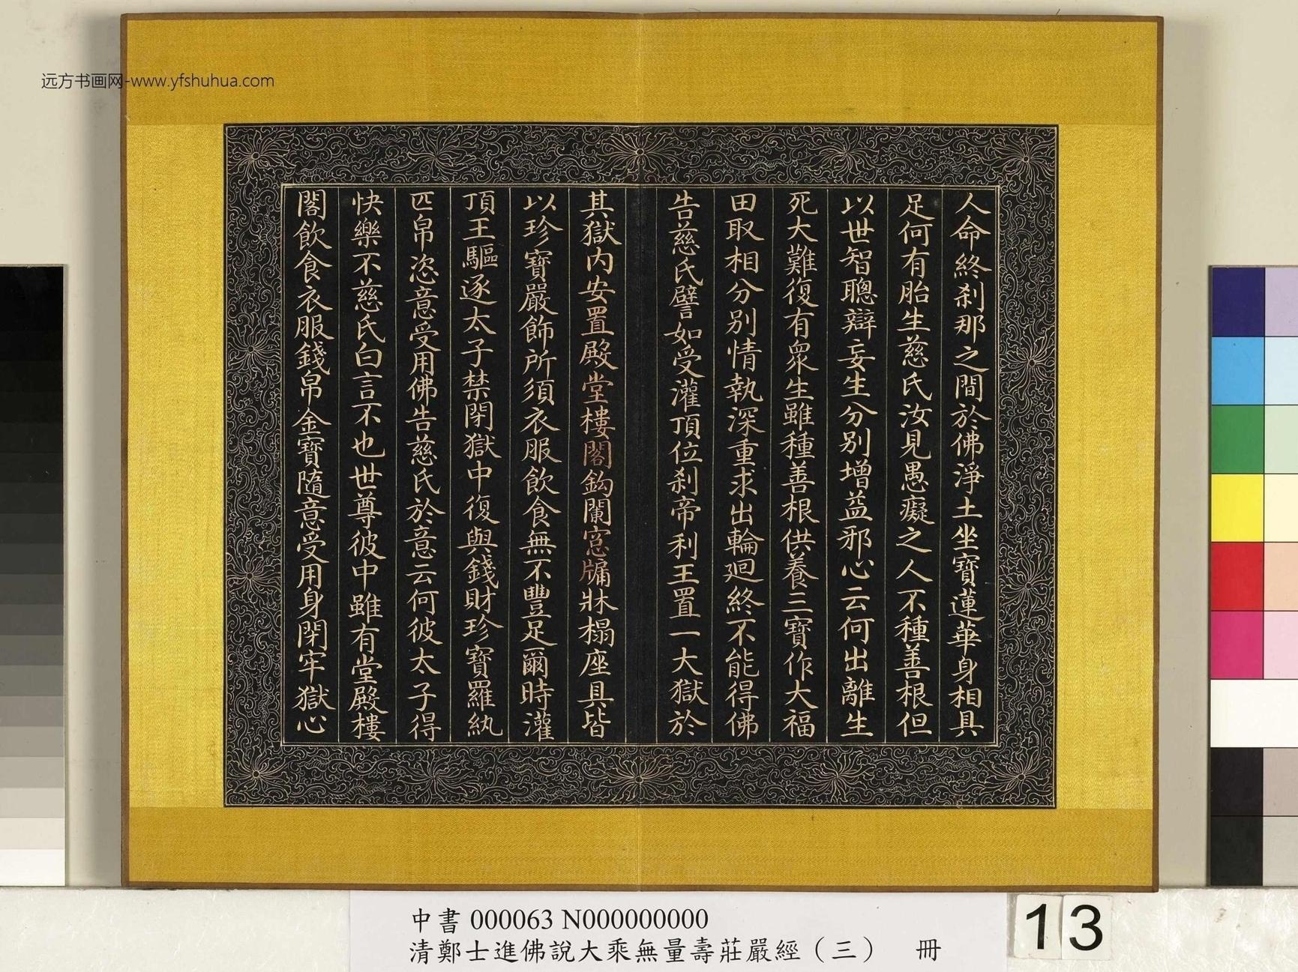 远方书画网-www.yfshuhua.com
人命終刹那之間於佛淨土坐寶蓮華身相具
足何有胎生慈氏汝見愚癡之人不種善根但
以世智聰辯妄生分别增益邪心云何出離生
死大難復有衆生雖種善根供養三寶作大福
田取相分别情執深重求出輪迴終不能得佛
告慈氏譬如受灌頂位刹帝利王置一大獄於
其獄内安置殿堂樓閣鈎闌窓牖牀榻座具皆
以珍寶嚴飾所須衣服飲食無不豐足爾時灌
頂王驅逐太子禁閉獄中復與錢財珍寶羅紈
匹帛恣意受用佛告慈氏於意云何彼太子得
快樂不慈氏白言不也世尊彼中雖有堂殿樓
閣飲食衣服錢帛金寶隨意受用身閉牢獄心
中書 000063 N000000000
清鄭士進佛說大乘無量壽莊嚴經（三） 冊
13